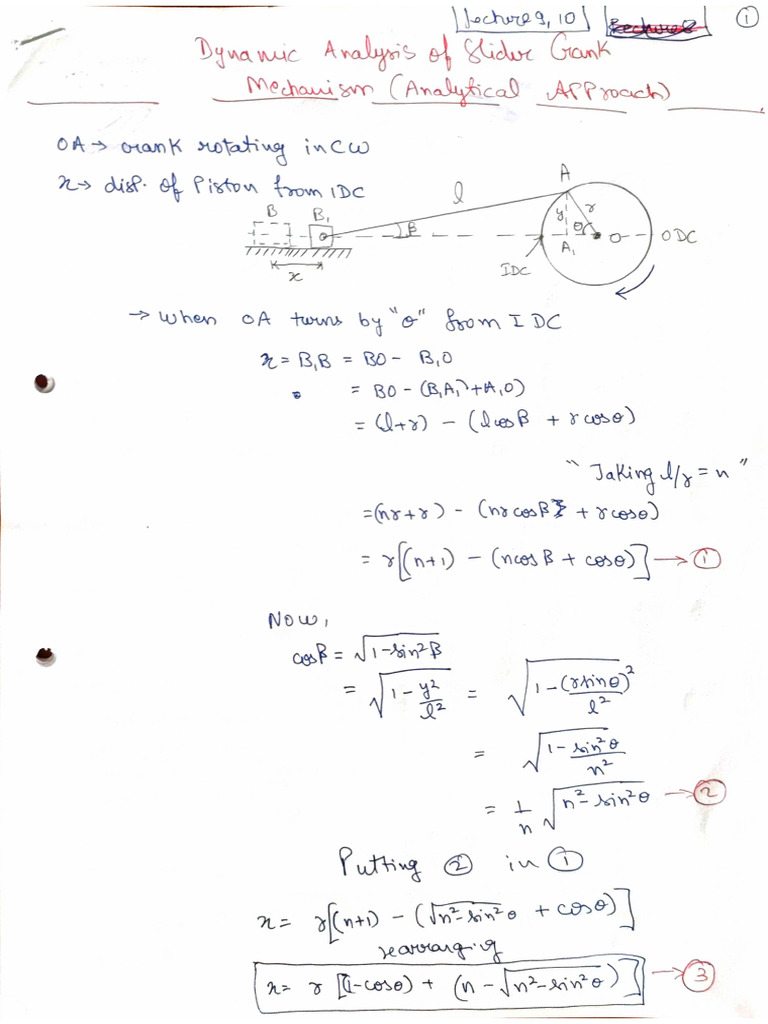 Lecture 9, 10 ①
Dynamic Analysis of Slider Crank
Mechanism (Analytical Approach)
OA → crank rotating in CW
x → disp. of Piston from IDC
A
l
B B₁ β y r θ O ODC
A₁
IDC
x
→ When OA turns by "θ" from IDC
x = B₁B = BO - B₁O
= BO - (B₁A₁ + A₁O)
= (l+r) - (l cosβ + r cosθ)
"Taking l/r = n"
= (nr+r) - (nr cosβ + r cosθ)
= r[(n+1) - (n cosβ + cosθ)] → ①
Now,
cosβ = √(1-sin²β)
= √(1 - y²/l²) = √(1 - (r sinθ)²/l²)
= √(1 - sin²θ/n²)
= 1/n √(n² - sin²θ) → ②
Putting ② in ①
x = r[(n+1) - (√(n²-sin²θ) + cosθ)]
rearranging
x = r [(1-cosθ) + (n - √(n²-sin²θ))] → ③